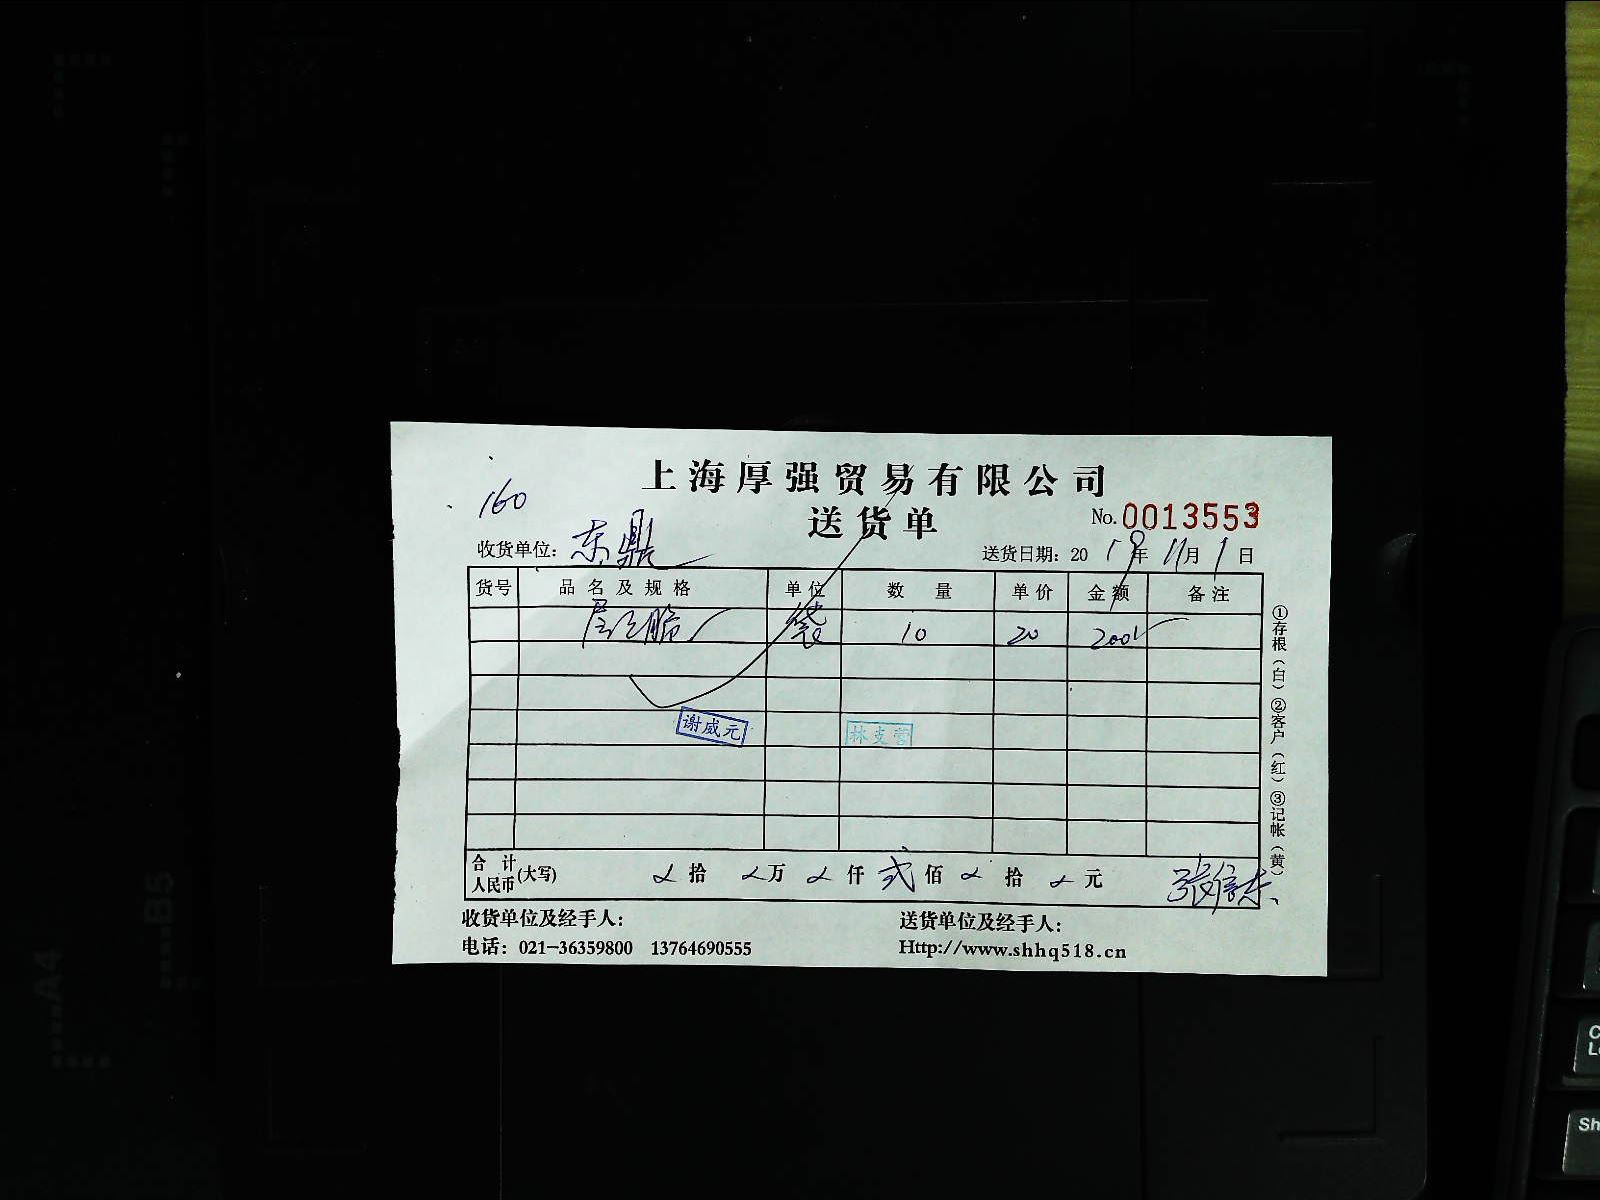 上海厚强贸易有限公司
160
送货单
No.0013553
收货单位：东鼎
送货日期：2019年11月1日
货号 品名及规格 单位 数量 单价 金额 备注
层层脆 袋 10 20 200
谢威元
林支营
合计人民币(大写) 拾 万 仟 贰佰 拾 元
张信杰
①存根（白）②客户（红）③记帐（黄）
收货单位及经手人：
送货单位及经手人：
电话：021-36359800 13764690555
Http://www.shhq518.cn
A4
B5